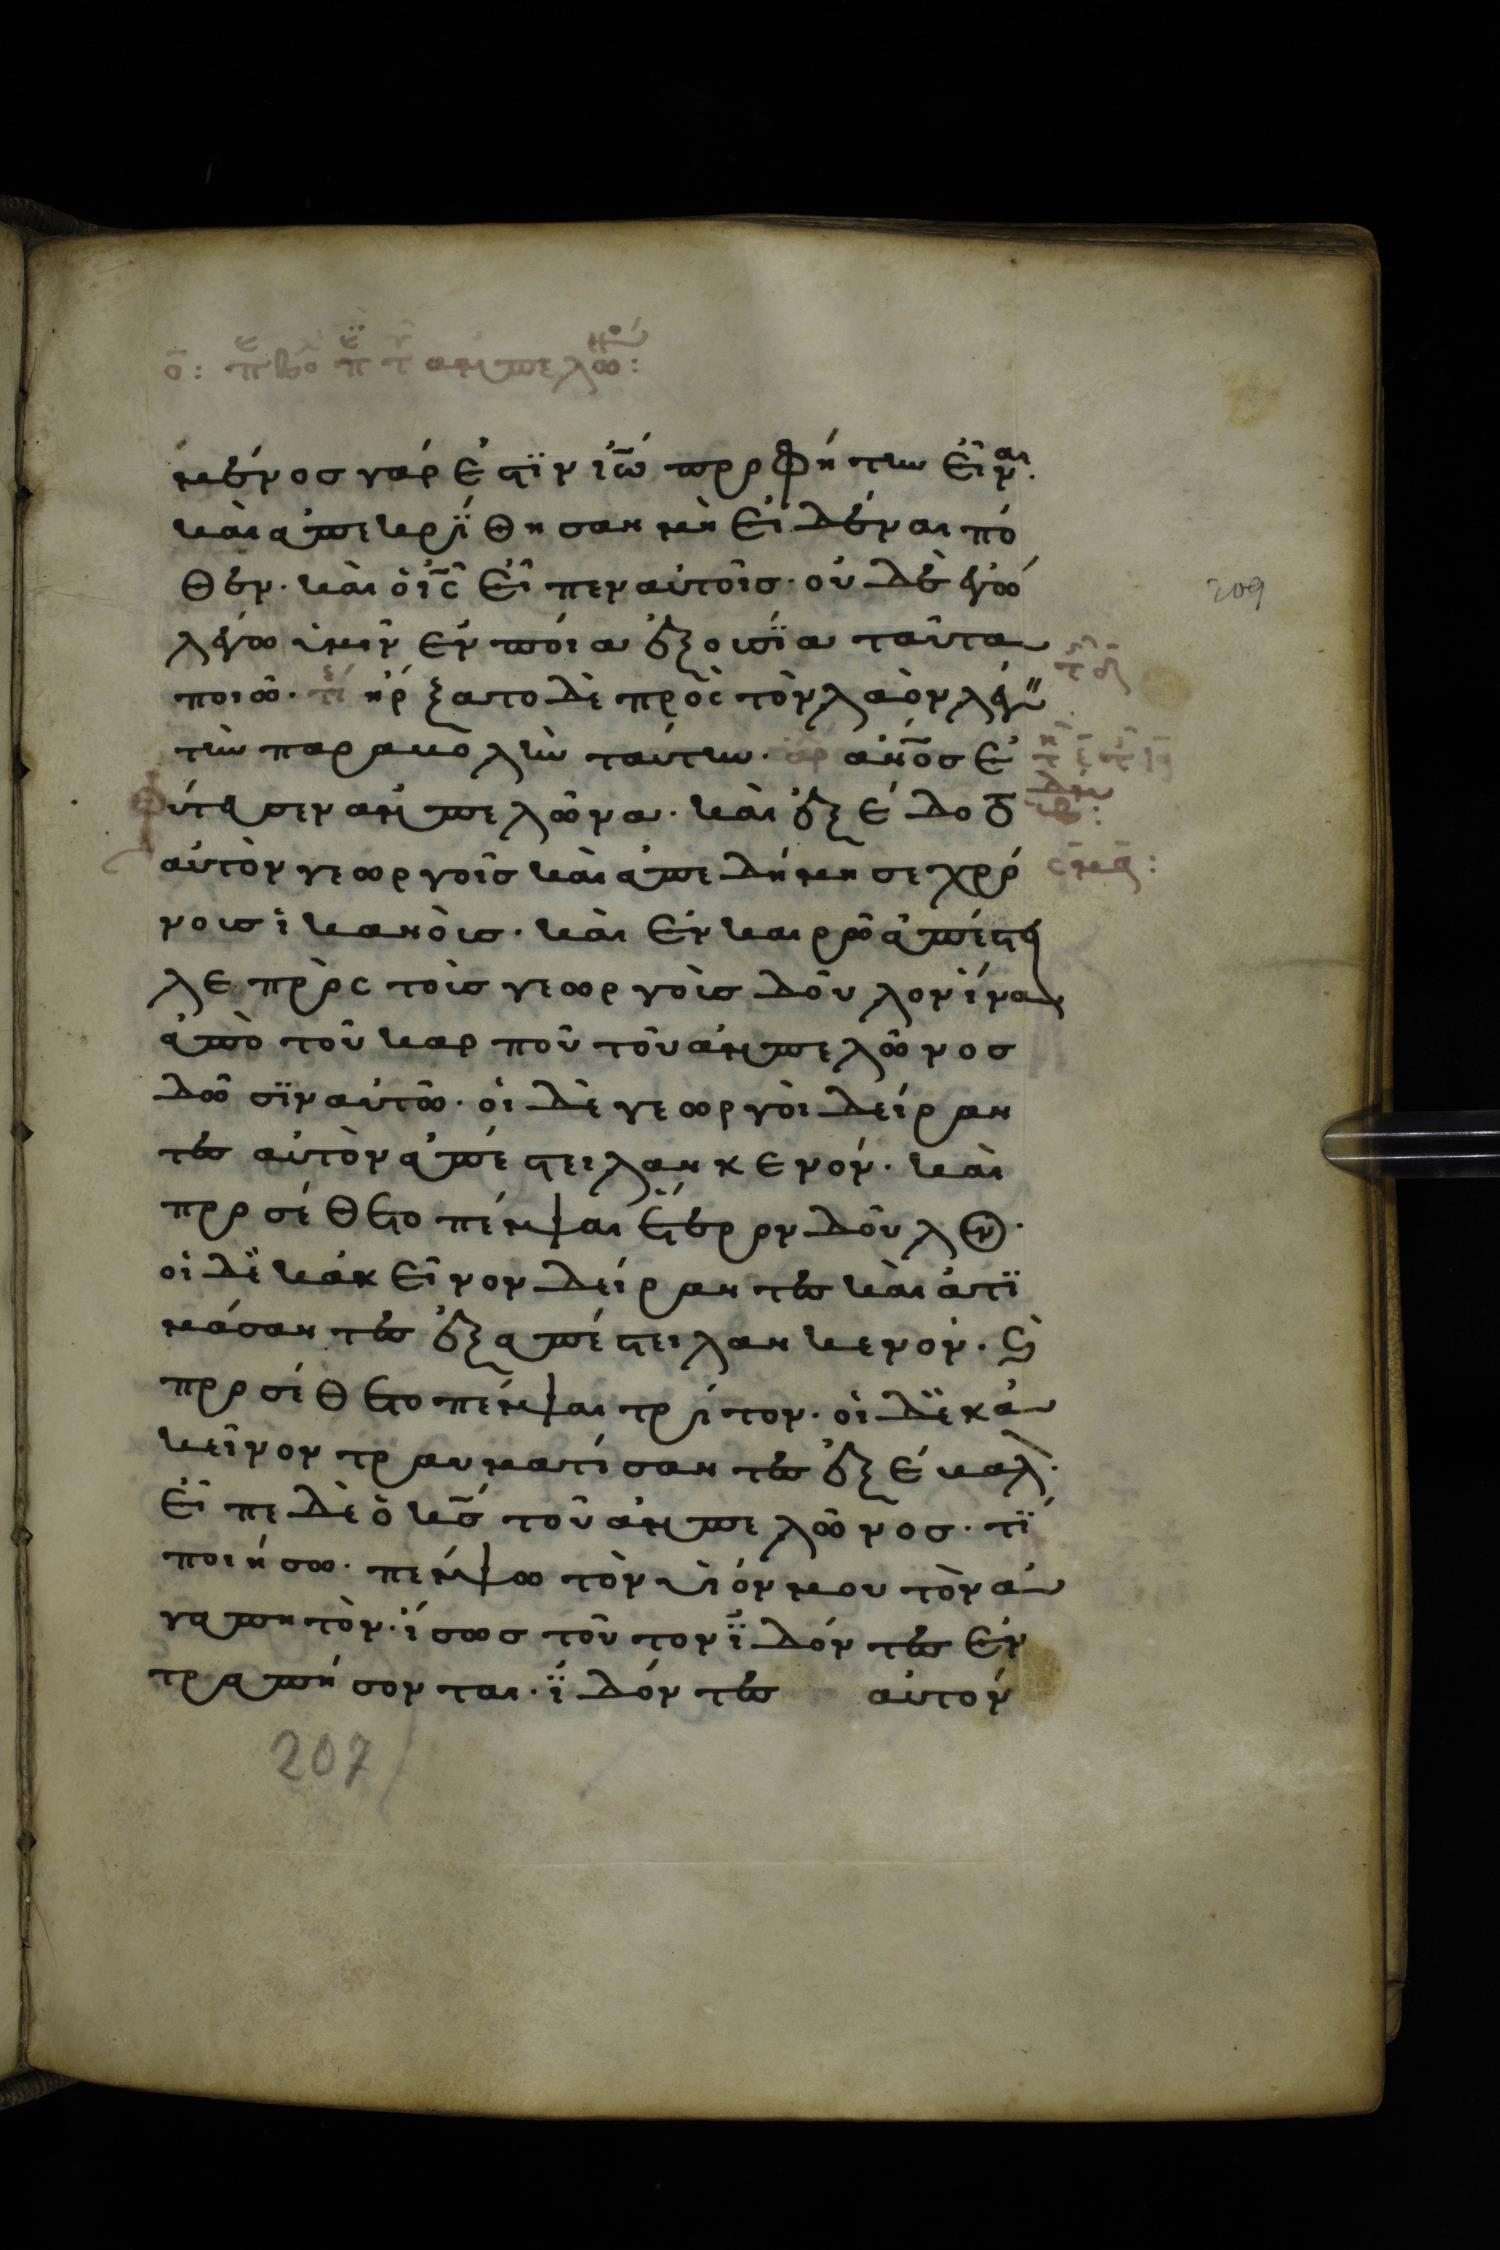 μένος γάρ ἐστϊν ἰω̄ προφήτην εἶναι.
καὶ ἀπεκρίθησαν μὴ εἰδέναι πό
θεν. καὶ ὁ ις̄ εἶπεν αὐτοῖς. οὐδὲ ἐγὼ
λέγω ὑμῖν ἐν ποία ἐξουσία ταῦτα
ποιῶ. ἤρξατο δὲ πρὸς τὸν λαὸν λέγειν
τὴν παραβολὴν ταύτην. ἀν̄ος ἐ
φύτευσεν ἀμπελῶνα. καὶ ἐξέδοτο
αὐτὸν γεωργοῖς καὶ ἀπεδήμησε χρό
νους ἱκανοὺς. καὶ ἐν καιρῶ ἀπέστει
λε πρὸς τοὺς γεωργοὺς δοῦλον ἵνα
ἀπὸ τοῦ καρποῦ τοῦ ἀμπελῶνος
δῶσϊν αὐτῶ. οἱ δὲ γεωργοὶ δείραν
τες αὐτὸν ἀπέστειλαν κενόν. καὶ
προσέθετο πέμψαι ἕτερον δοῦλον.
οἱ δὲ κἀκεῖνον δείραντες καὶ ἀτϊ
μάσαντες ἐξαπέστειλαν κενόν. καὶ
προσέθετο πέμψαι τρίτον. οἱ δὲ κἀ
κεῖνον τραυματίσαντες ἐξέβαλον.
εἶπε δὲ ὁ κς̄ τοῦ ἀμπελῶνος. τί
ποιήσω. πέμψω τὸν υἱόν μου τὸν ἀ
γαπητὸν. ἴσως τοῦτον ἰδόντες ἐν
τραπήσονται. ἰδόντες αὐτὸν
207
209